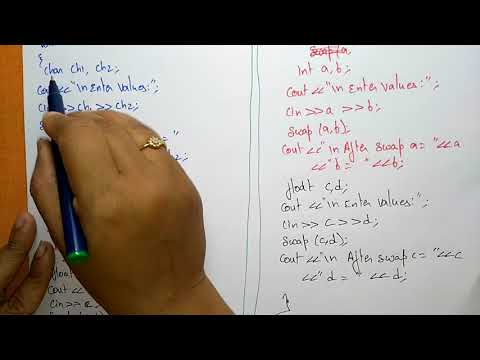 {
char ch1, ch2;
cout << "\n Enter values:";
cin >> ch1 >> ch2;
= "
float
cout <<
cin >> c,
swap (a,
int a, b;
cout << "\n Enter values:";
cin >> a >> b;
swap (a, b)
cout << "\n After swap a = " << a
<< " b = " << b;
float c, d;
cout << "\n Enter values:";
cin >> c >> d;
swap (c, d);
cout << "\n After swap c = " << c
<< " d = " << d;
}